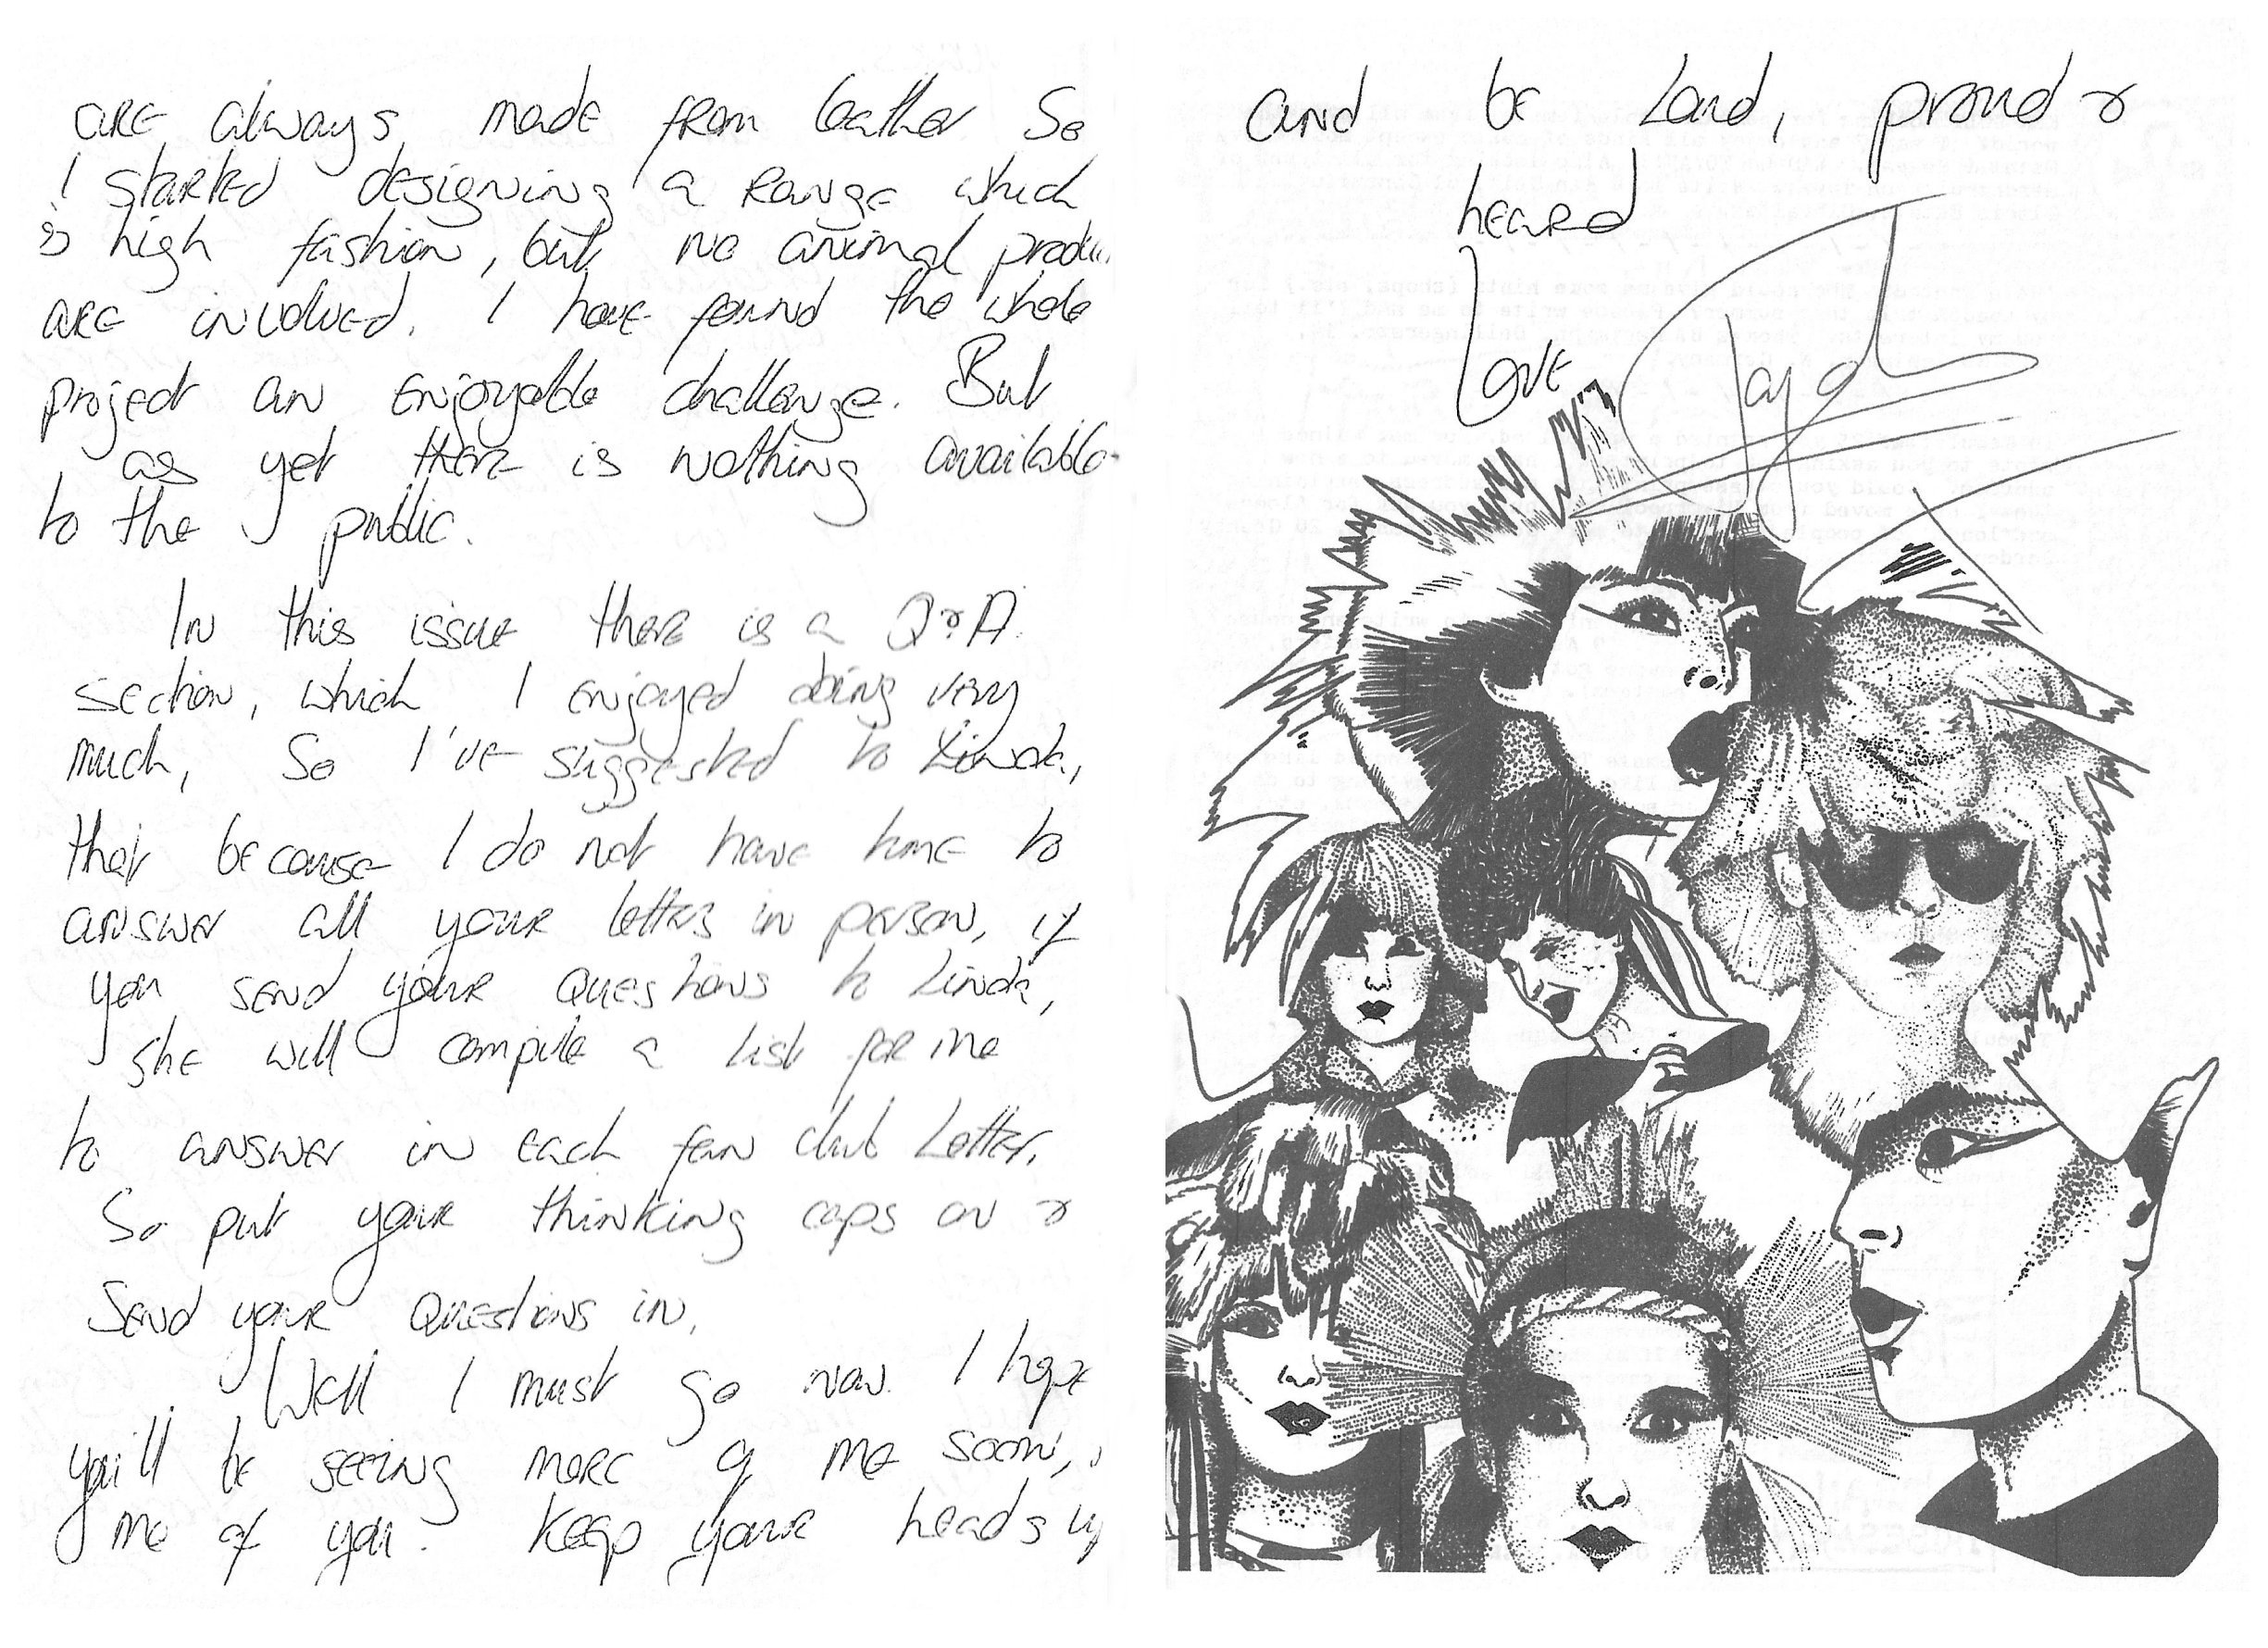 are always made from leather So
I started designing a range which
is high fashion, but no animal produ
are involved. I have found the whole
project an enjoyable challenge. But
as yet there is nothing available
to the public.
In this issue there is a Q & A.
section, which I enjoyed doing very
much, So I've suggested to Linda,
that because I do not have time to
answer all your letters in person, if
you send your questions to Linda,
she will compile a list for me
to answer in each fan club Letter.
So put your thinking caps on &
Send your Questions in.
Well I must go now. I hope
you'll be seeing more of me soon,
me of you. Keep your heads up
and be Loud, proud &
heard
Love